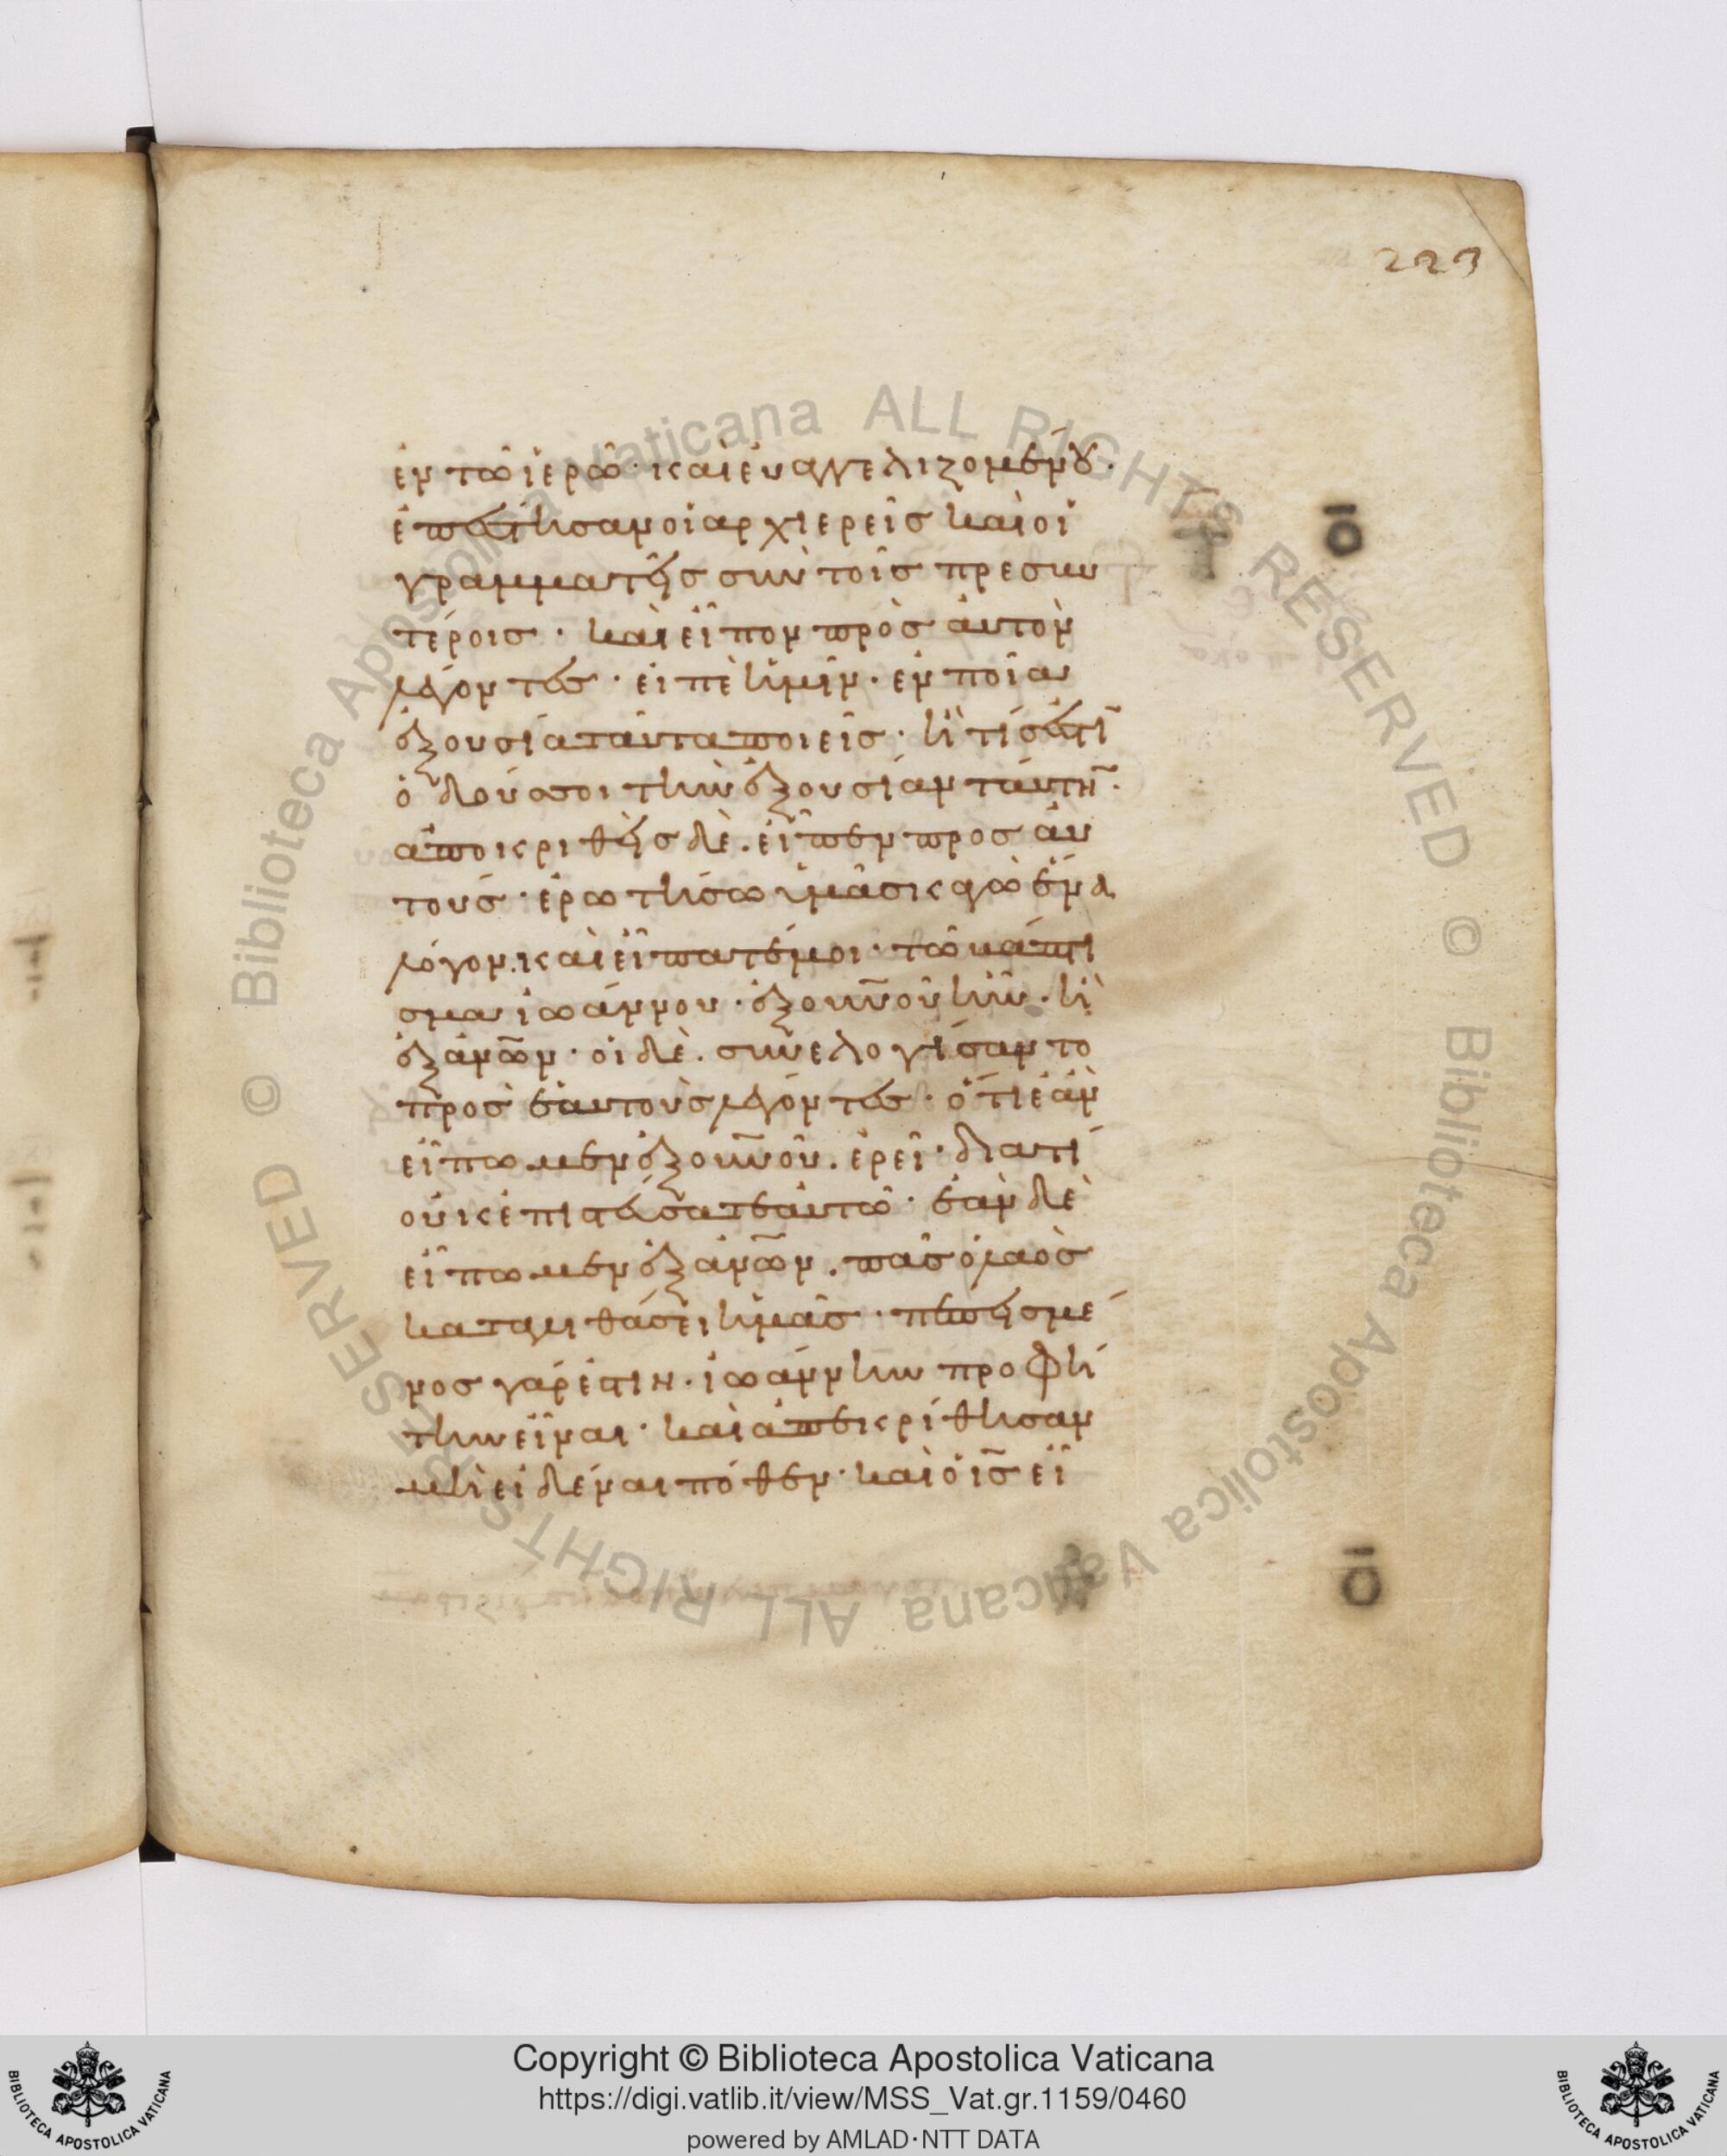 223
ἐν τῶ ἱερῶ· καὶ εὐαγγελιζομένου·
ἐπέστησαν οἱ ἀρχιερεῖς καὶ οἱ
γραμματεῖς σὺν τοῖς πρεσβυ
τέροις· καὶ εἶπον πρὸς αὐτὸν
λέγοντες· εἰπὲ ἡμῖν· ἐν ποία
ἐξουσία ταῦτα ποιεῖς· ἢ τίς ἐστι
ὁ δούς σοι τὴν ἐξουσίαν ταύτην·
ἀποκριθεὶς δὲ· εἶπεν προς αὐ
τούς· ἐρωτήσω ὑμᾶς κἀγὼ ἕνα
λόγον· καὶ εἴπατέ μοι· τὸ βάπτι
σμα ἰωάννου· ἐξ οὐνοῦ ἦν· ἢ
ἐξ ἀνων· οἱ δὲ· συνελογίσαντο
προς ἑαυτοὺς λέγοντες· ὅτι ἐὰν
εἴπωμεν ἐξ οὐνοῦ· ἐρεῖ· διατί
οὐκ ἐπιστεύσατε αὐτῶ· ἐὰν δὲ
εἴπωμεν ἐξ ἀνων· πᾶς ὁ λαὸς
καταλιθάσει ἡμᾶς· πεπεισμέ
νος γάρ ἐστιν· ἰωάννην προφή
την εἶναι· καὶ ἀπεκρίθησαν
μὴ εἰδέναι πόθεν· καὶ ὁ ις εἶ
ο
ο
© Biblioteca Apostolica Vaticana ALL RIGHTS RESERVED © Biblioteca Apostolica Vaticana ALL RIGHTS RESERVED
BIBLIOTECA APOSTOLICA VATICANA
Copyright © Biblioteca Apostolica Vaticana
https://digi.vatlib.it/view/MSS_Vat.gr.1159/0460
powered by AMLAD·NTT DATA
BIBLIOTECA APOSTOLICA VATICANA